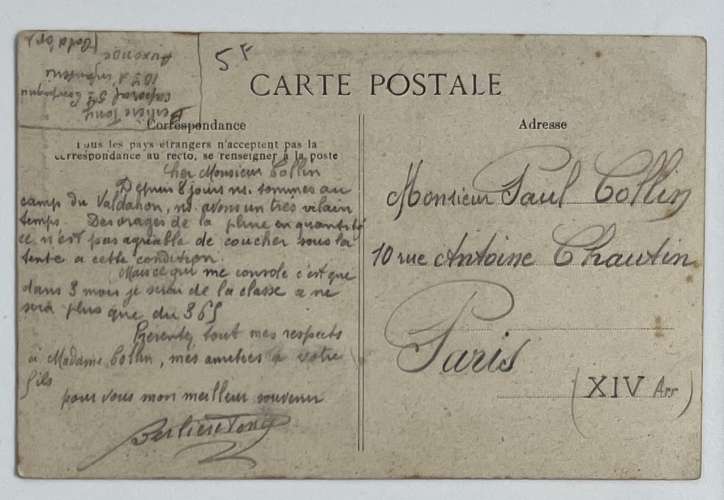 5F
CARTE POSTALE
Tony
caporal 5e Compagnie
10e d'infanterie
Auxonne
Correspondance
Tous les pays étrangers n'acceptent pas la
correspondance au recto, se renseigner à la poste
Adresse
Cher Monsieur Collin
Depuis 8 jours ns. sommes au
camp du Valdahon, ns. avons un tres vilain
temps. Des orages de la pluie en quantité
ce n'est pas agréable de coucher sous la
tente a cette condition.
Mais ce qui me console c'est que
dans 3 mois je serai de la classe a ne
sera plus que du 365
Presentez tout mes respects
à Madame Collin, mes amitiés a votre
fils
pour vous mon meilleur souvenir
Tony
Monsieur Paul Collin
10 rue Antoine Chautin
Paris
(XIV Arr)